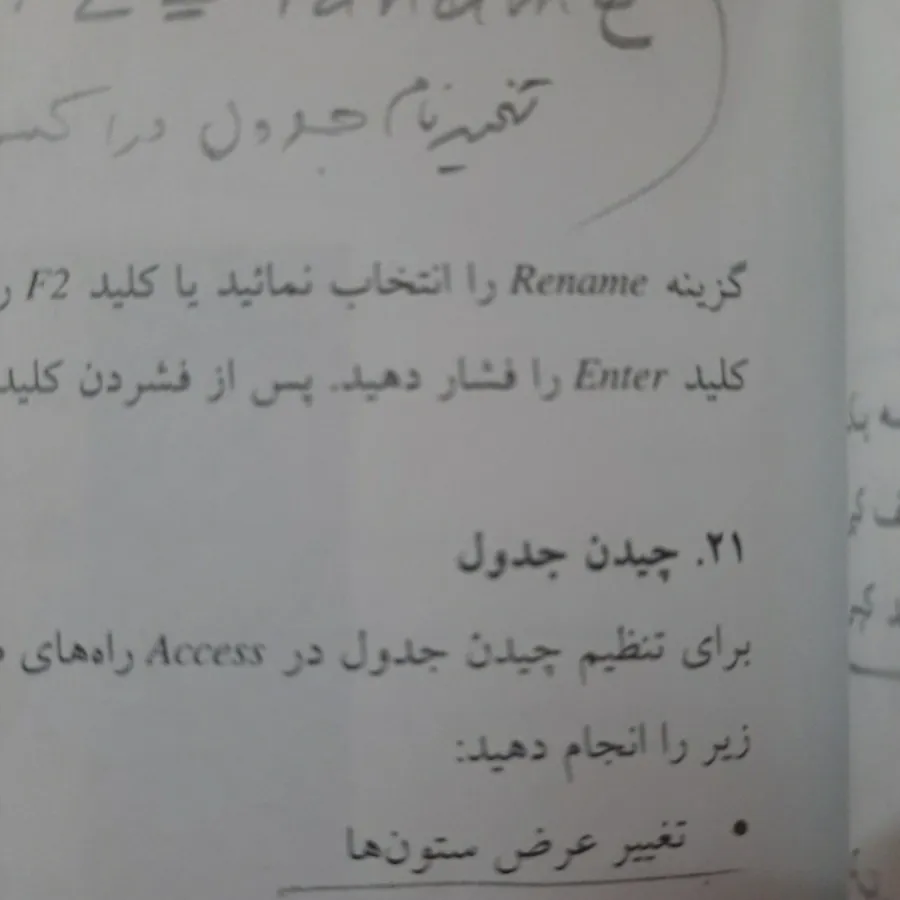 2 = Taname
تغییر نام جدول در اکسس
گزینه Rename را انتخاب نمائید یا کلید F2 ر
کلید Enter را فشار دهید. پس از فشردن کلید
۲۱. چیدن جدول
برای تنظیم چیدن جدول در Access راه‌های
زیر را انجام دهید:
• تغییر عرض ستون‌ها